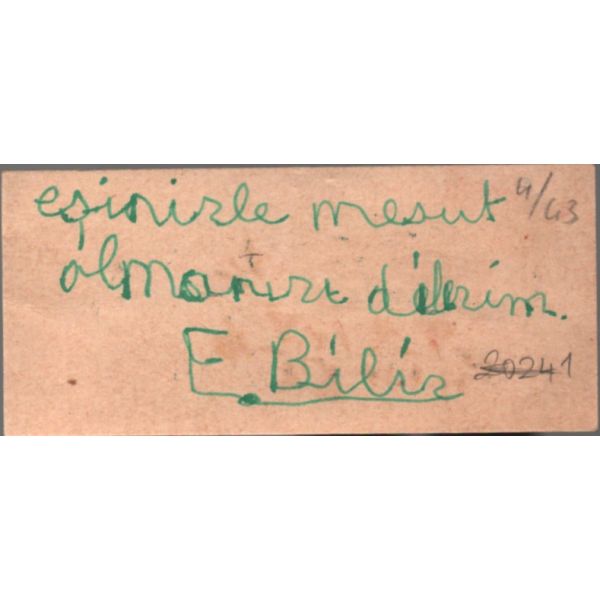 eşinizle mesut 4/43
olmanızı dilerim.
E. Biliz 20241